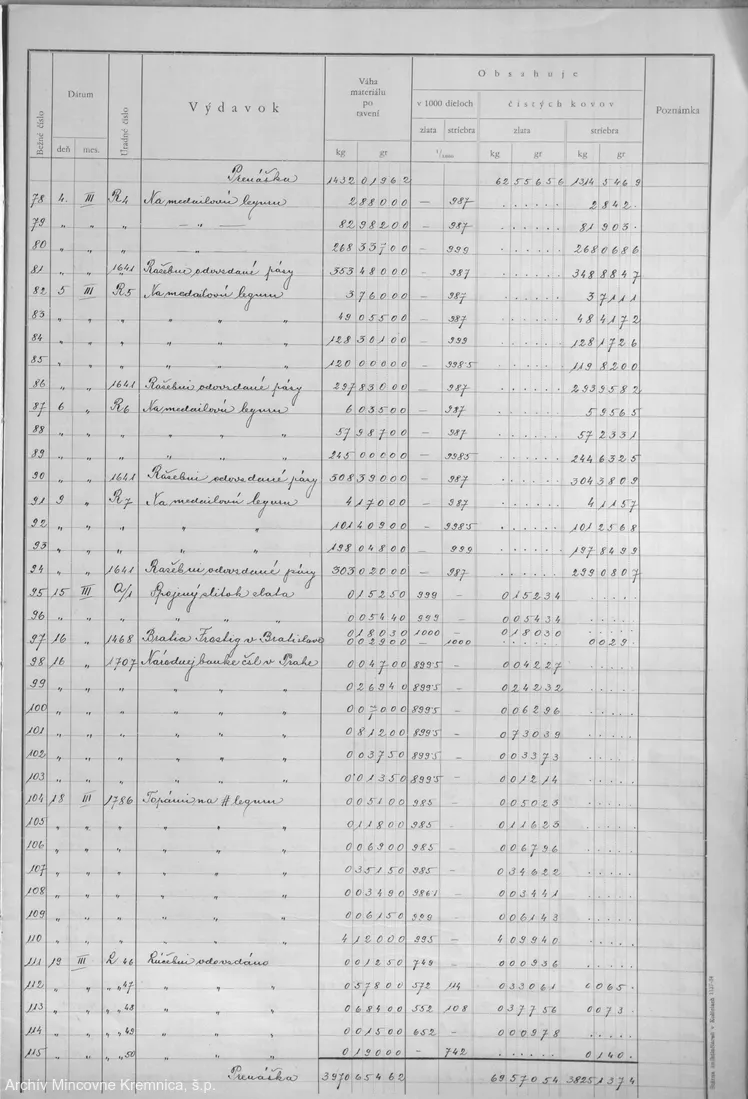 Bežné číslo Dátum Uradné číslo Výdavok Váha materiálu po tavení Obsahuje Poznámka
v 1000 dieloch čistých kovov
deň mes. zlata striebra zlata striebra
kg gr 1/1000 kg gr kg gr
Prenáška 1432 01962 62 55656 1314 5469
78 4. III R4 Na medailovú leguru 2 88000 — 987 2 842.
79 " " " — " — 82 98200 — 987 81 903.
80 " " " " 268 33700 — 999 268 0686
81 " " 1641 Ražebni odovzdané pásy 353 48000 — 987 348 8847
82 5 III R5 Na medailovú leguru 3 76000 — 987 3 7111
83 " " " " " " 49 05500 — 987 48 4172
84 " " " " " " 128 30100 — 999 128 1726
85 " " " " " " 120 00000 — 9985 119 8200
86 " " 1641 Ražebni odovzdané pásy 297 83000 — 987 293 9582
87 6 " R6 Na medailovú leguru 6 03500 — 987 5 9565
88 " " " " " 57 98700 — 987 57 2331
89 " " " " " 245 00000 — 9985 244 6325
90 " " 1641 Ražebni odovzdané pásy 308 39000 — 987 304 3809
91 9 " R7 Na medailovú leguru 4 17000 — 987 4 1157
92 " " " " 101 40900 — 9985 101 2568
93 " " " " 198 04800 — 999 197 8499
94 " " 1641 Ražebni odovzdané pásy 303 02000 — 987 299 0807
95 15 III a/1 Spojený stitok zlata 0 15250 999 0 15234
96 " " " " " 0 05440 999 0 05434
97 16 " 1468 Bratia Frostig v Bratislave 0 18030 1000 0 18030
0 02900 — 1000 0 029.
98 16 " 1707 Národnej banke čsl v Prahe 0 04700 899.5 — 0 04227
99 " " " " " " 0 26940 899.5 — 0 24232
100 " " " " " " 0 07000 899.5 — 0 06296
101 " " " " " " 0 81200 899.5 — 0 73039
102 " " " " " " 0 03750 899.5 — 0 03373
103 " " " " " " 0 01350 899.5 — 0 01214
104 18 III 1786 Topánina # leguru 0 05100 985 — 0 05023
105 " " " " " " 0 11800 985 — 0 11623
106 " " " " " " 0 06900 985 — 0 06796
107 " " " " " " 0 35150 985 — 0 34622
108 " " " " " " 0 03490 986.1 — 0 03441
109 " " " " " " 0 06150 999 — 0 06143
110 " " " " " " 4 12000 995 — 4 09940
111 19 III L 46 Lúčebni odovzdáno 0 01250 749 — 0 00936
112 " " " "47 " " 0 57800 572 114 0 33061 0 065.
113 " " " "48 " " 0 68400 552 108 0 37756 0 073.
114 " " " "49 " " 0 01500 652 — 0 00978
115 " " " "50 " " 0 19000 — 742 0 140.
Prenáška 3970 65462 69 57054 3825 1374
Archív Mincovne Kremnica, š.p.